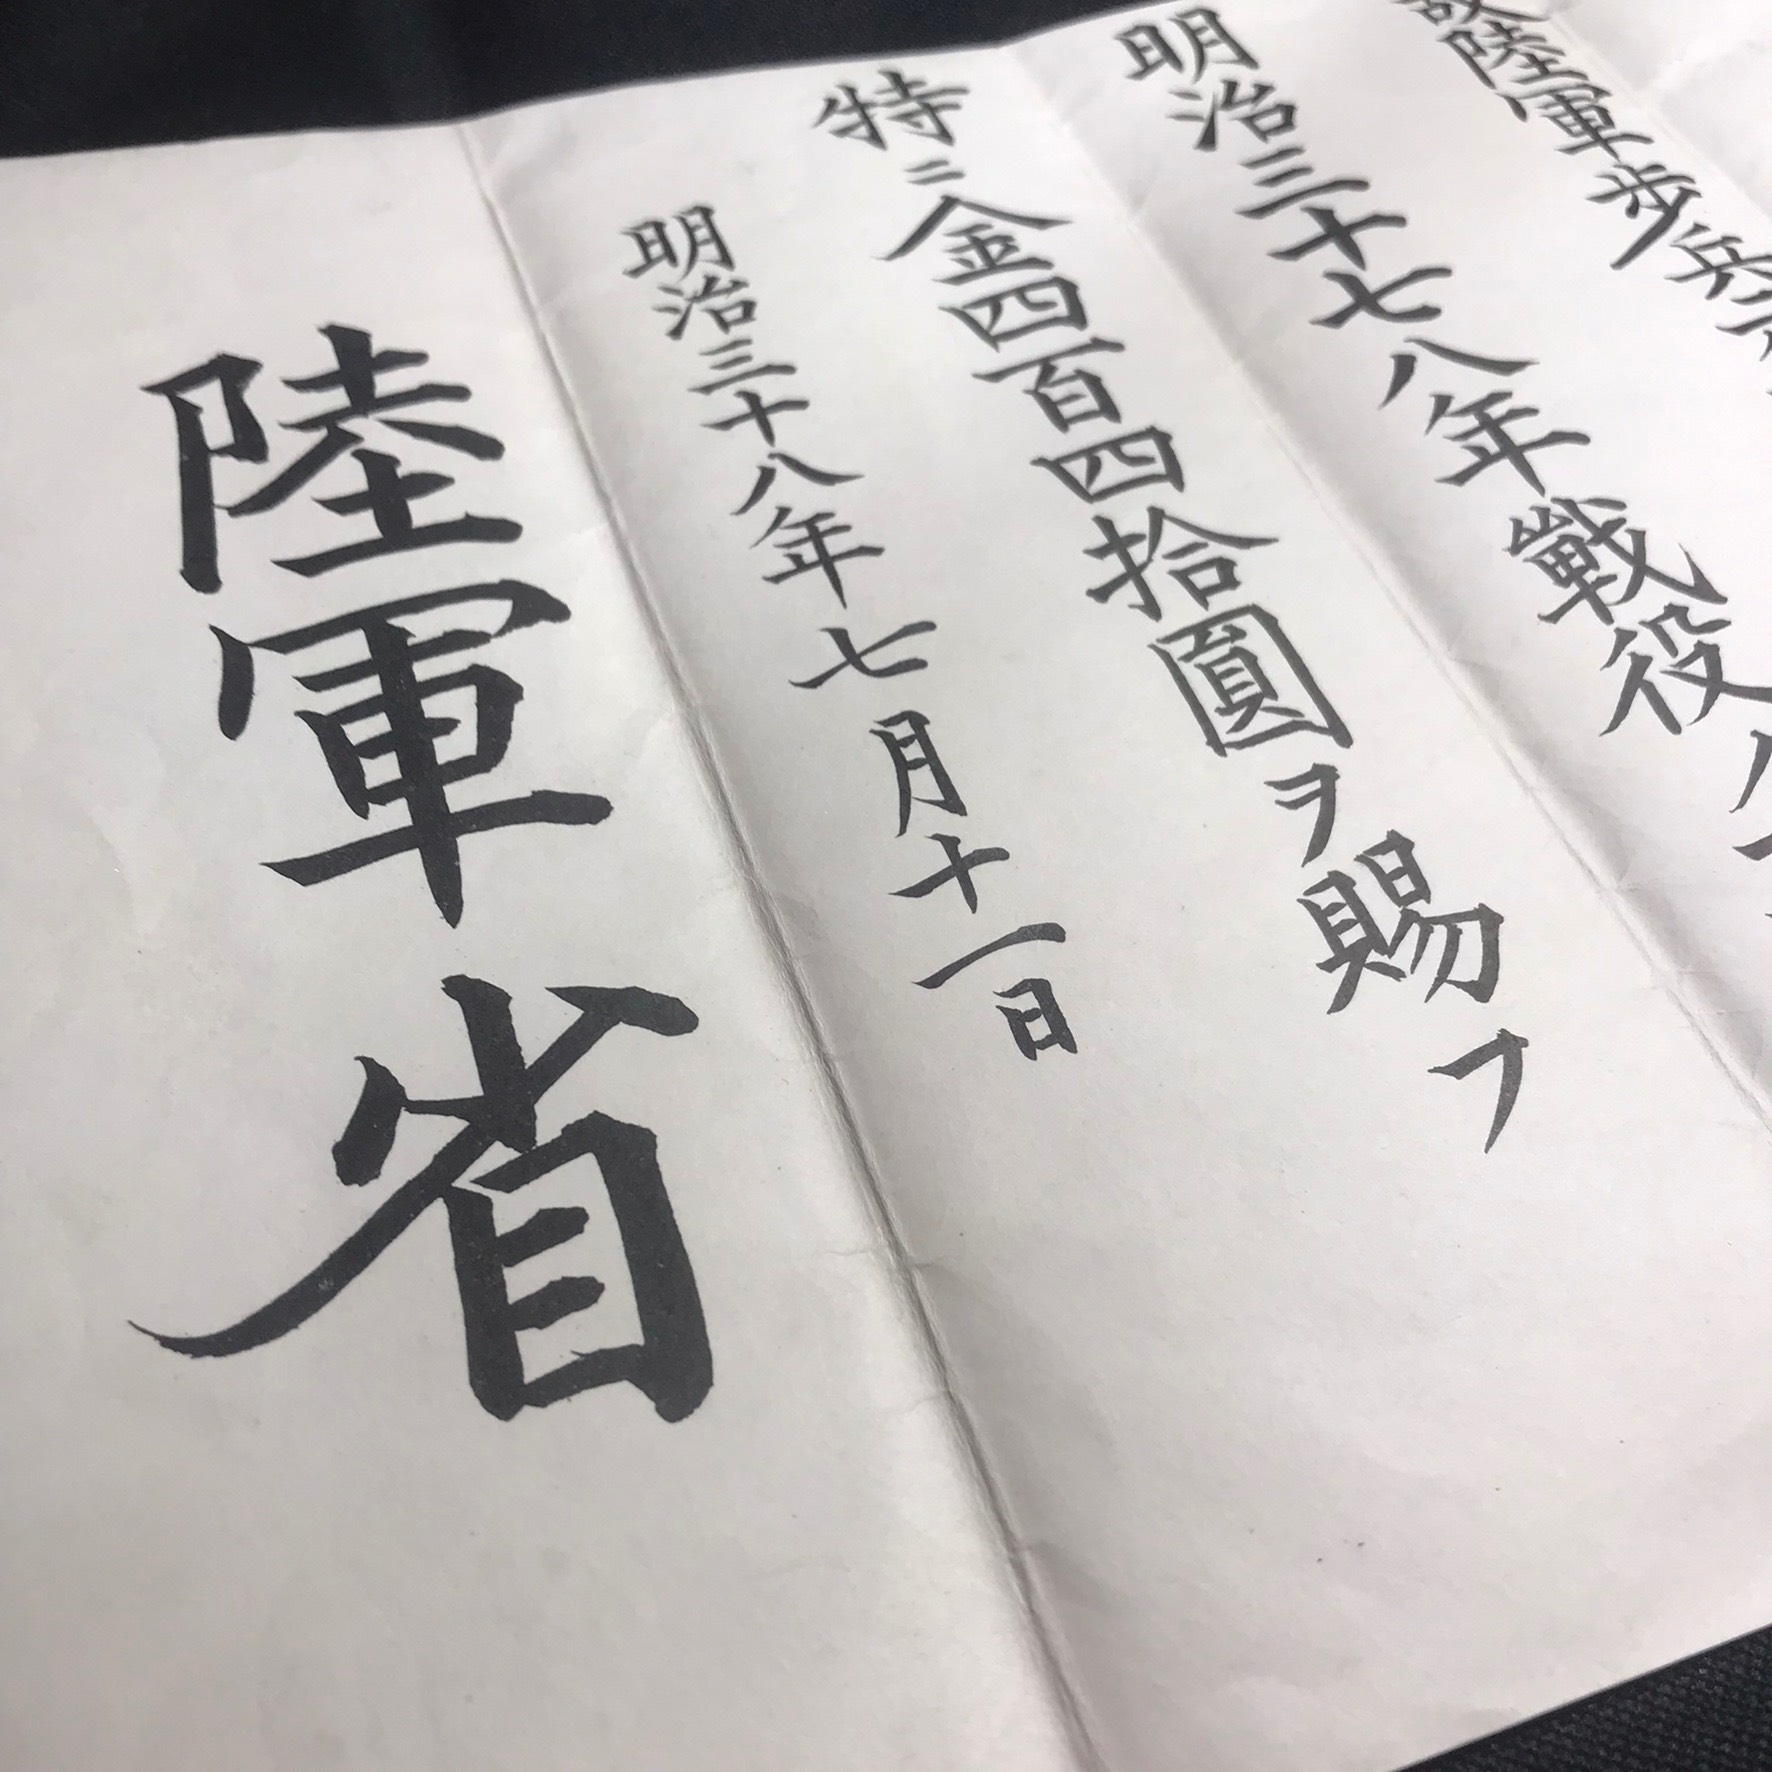 故陸軍歩兵
明治三十七八年戦役
特ニ金四百四拾圓ヲ賜フ
明治三十八年七月十一日
陸軍省